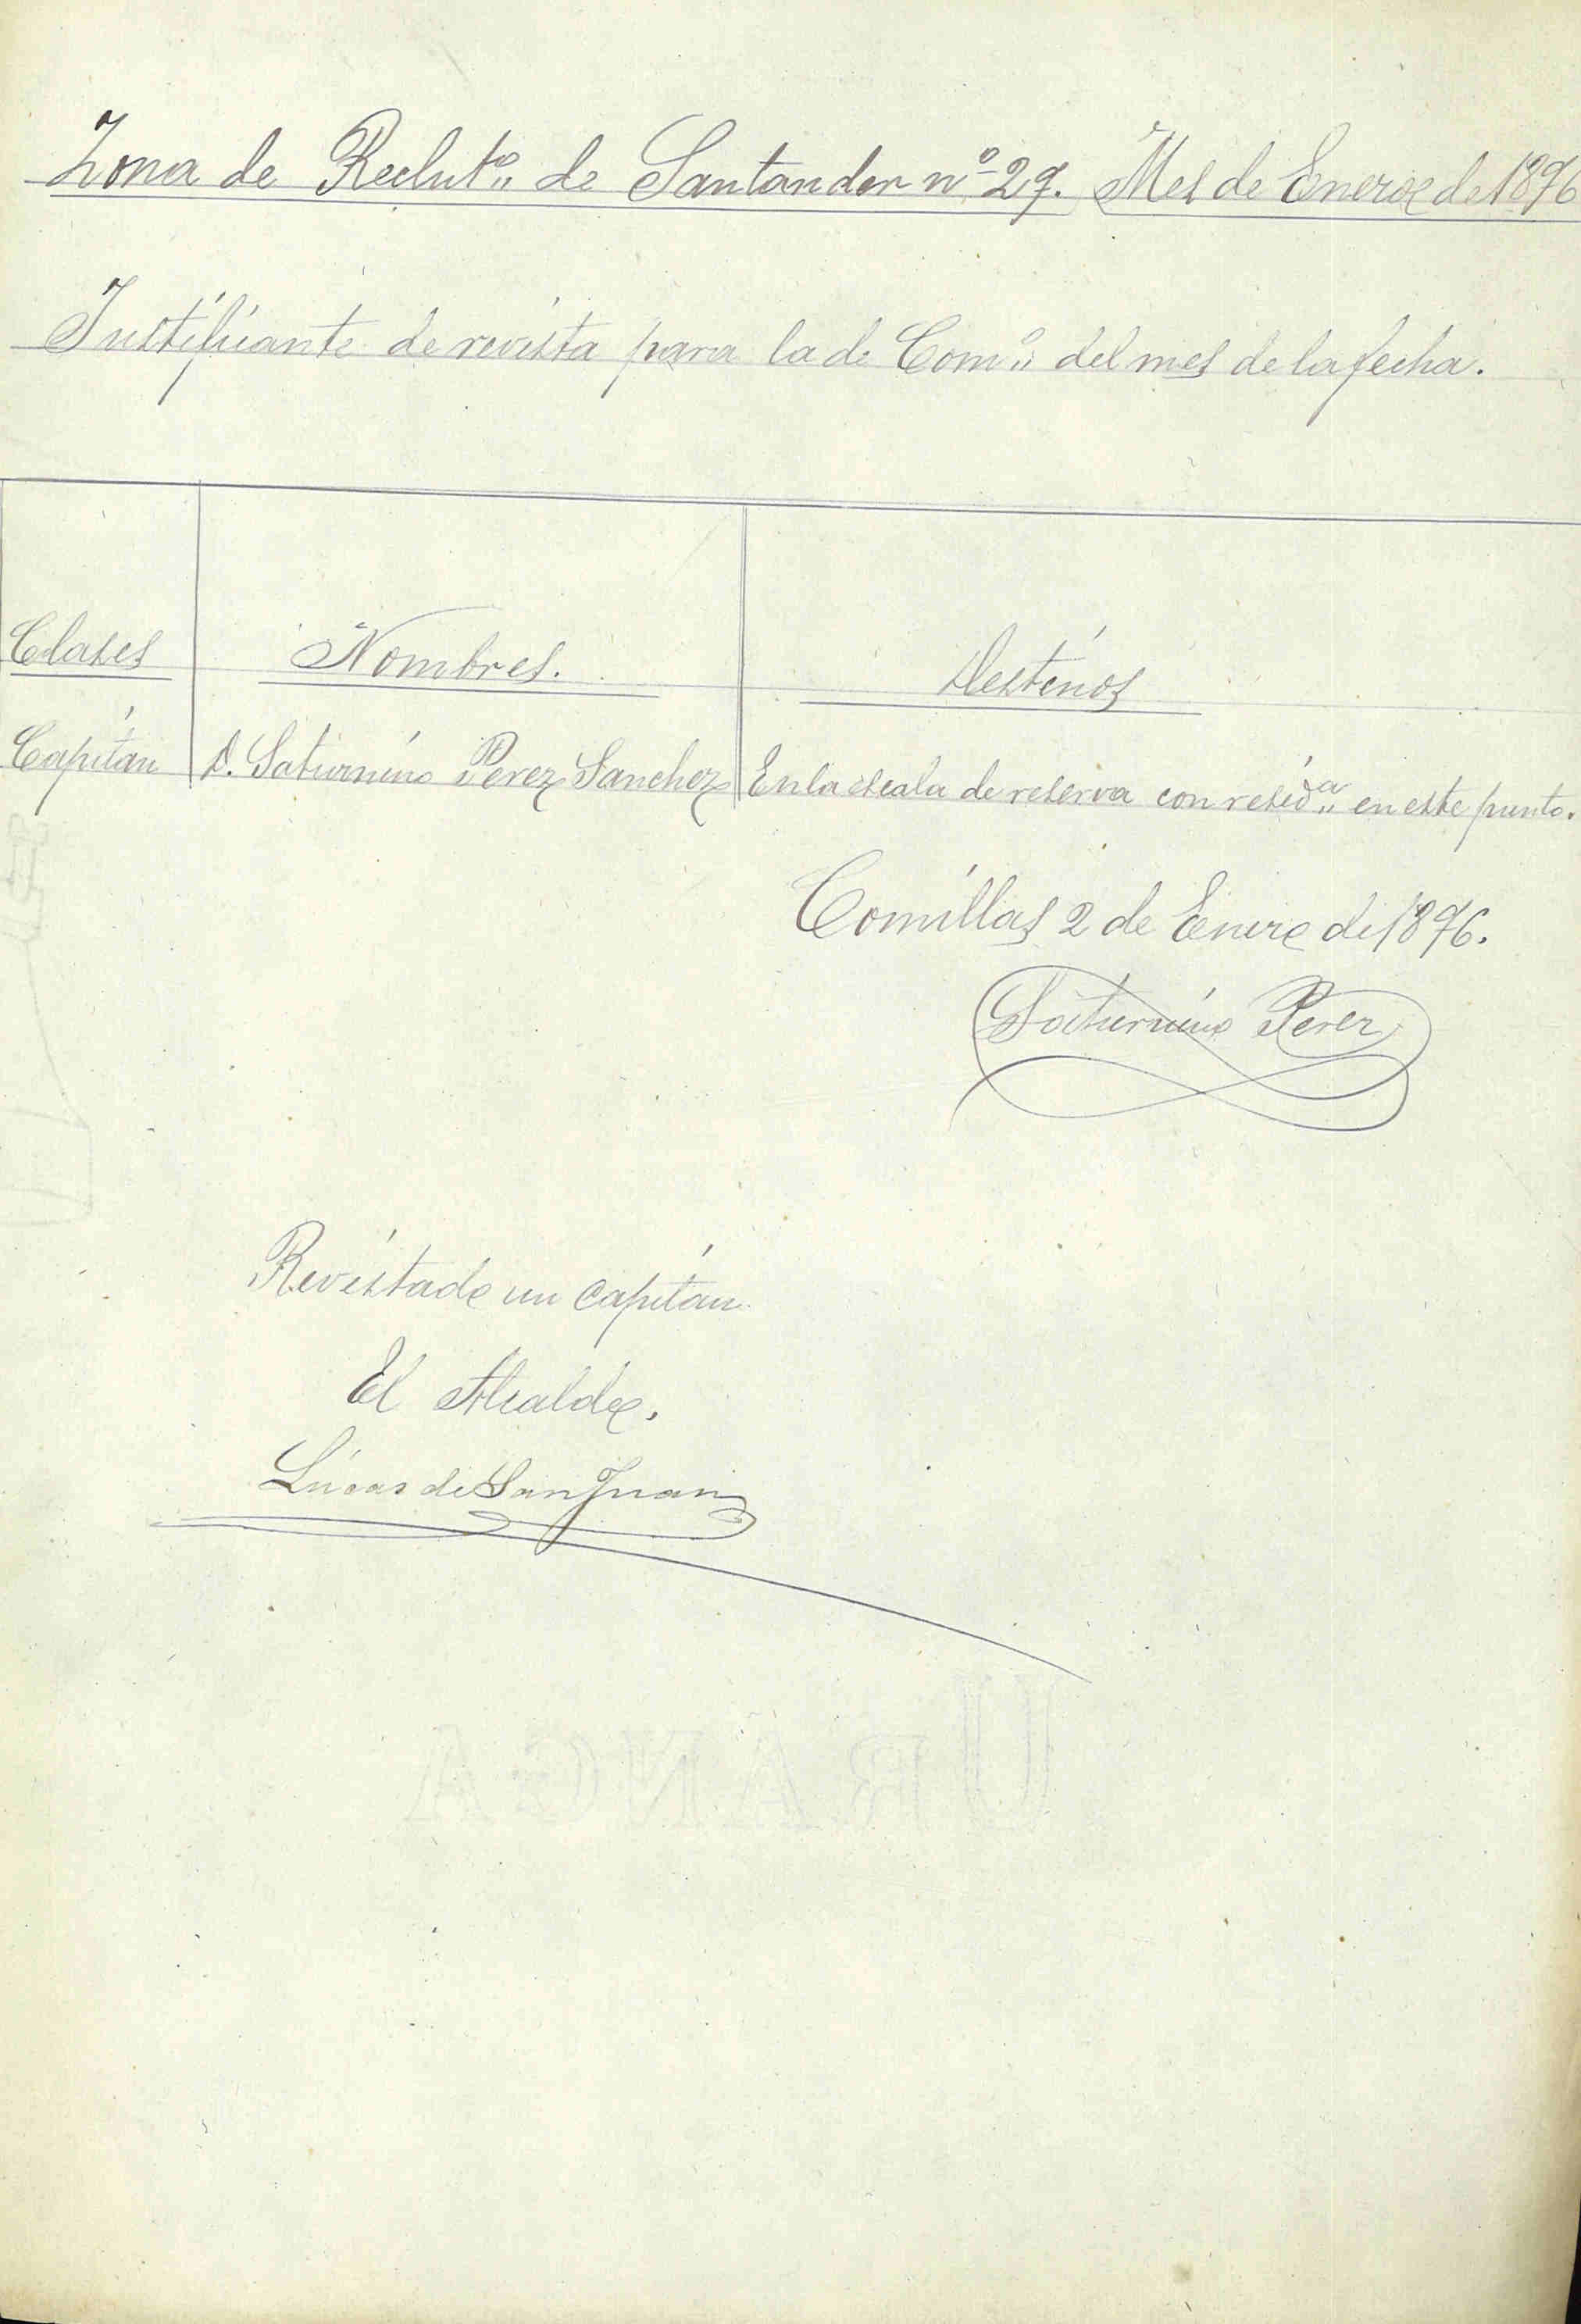 Zona de Reclutº de Santander nº 29. Mes de Enero de 1896
Justificante de revista para la de Comº del mes de la fecha.
Clases Nombres. Destinos
Capitán D. Saturnino Perez Sanchez En la escala de reserva con residª en este punto.
Comillas 2 de Enero de 1896.
Saturnino Perez
Revistado un capitán
El Alcalde,
Lúcas de San Juan
URANGA